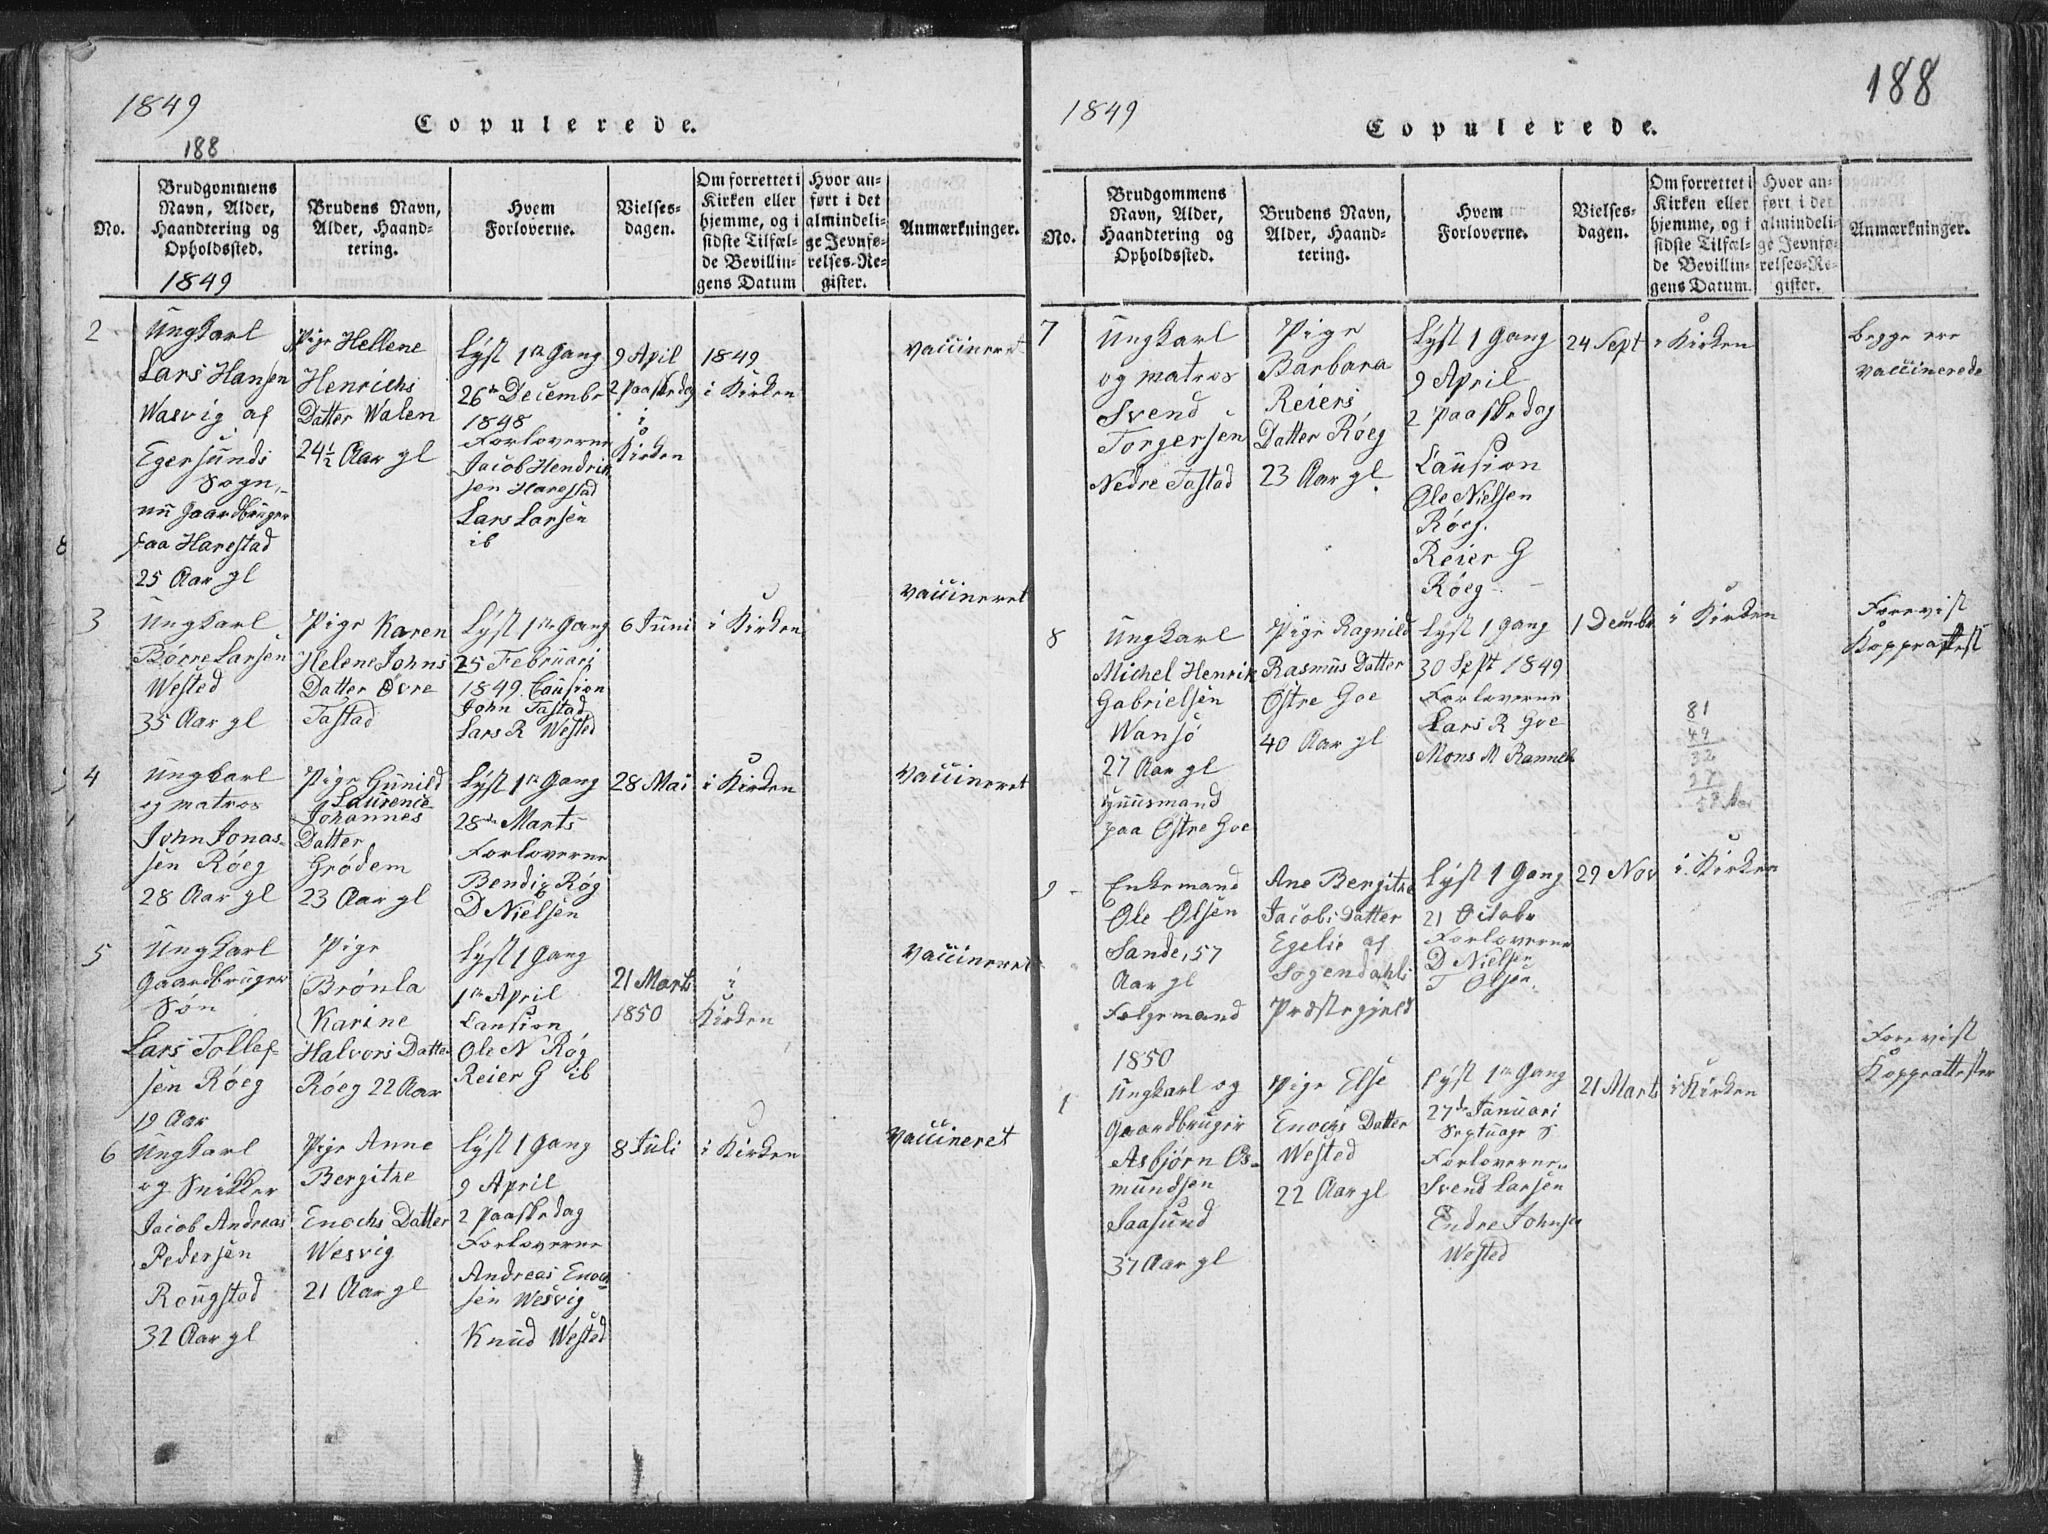 1849
Copulerede.
188
No.
Brudgommens
Navn, Alder,
Haandtering og
Opholdssted.
1849
Brudens Navn,
Alder, Haand-
tering.
Hvem
Forloverne.
Vielses-
dagen.
Om forrettet i
Kirken eller
hjemme, og i
sidste Tilfæl-
de Bevillin-
gens Datum
Hvor an-
ført i det
almindeli-
ge Jevnfø-
relses-Re-
gister.
Anmærkninger.
2
Ungkarl
Lars Hansen
Wasvig af
Egersunds
Sogn,
nu Gaardbruger
paa Harestad
25 Aar gl
Pige Hellene
Henrichs
Datter Walen
24½ Aar gl
Lyst 1te Gang
26de Decembr
1848
Forloverne
Jacob Hendrik
sen Harestad
Lars Larsen
ib
9 April
2 Paaskedag
i
Kirken
1849
i Kirken
vaccineret
8
3
Ungkarl
Børre Larsen
Wested
35 Aar gl
Pige Karen
Helene Johns
Datter Øvre
Tastad
Lyst 1te Gang
25 Februari
1849. Causion
John Tastad
Lars R Wested
6 Juni
i Kirken
vaccineret
4
Ungkarl
og matros
John Jonas-
sen Røeg
28 Aar gl
Pige Gunild
Laurence
Johannes
Datter
Grødem
23 Aar gl
Lyst 1te Gang
28de Marts
Forloverne
Bendix Røg
D Nielsen
28 Mai
i Kirken
vaccineret
5
Ungkarl
Gaardbruger
Søn
Lars Tollef-
sen Røeg
19 Aar
Pige
Brønla
Karine
Halvors Datter
Røeg 22 Aar
Lyst 1 Gang
1te April
Causion
Ole N Røg
Reier G ib
21 Marts
1850
i
Kirken
vaccineret
6
Ungkarl
og Snikker
Jacob Andreas
Pedersen
Rougstad
32 Aar gl
Pige Anne
Bergitte
Enochs Datter
Wesvig
21 Aar gl
Lyst 1 Gang
9 April
2 Paaskedag
Forloverne
Andreas Enoch
sen Wesvig
Knud Wested
8 Juli
i Kirken
vaccineret
1849
Copulerede.
188
No.
Brudgommens
Navn, Alder,
Haandtering og
Opholdssted.
Brudens Navn,
Alder, Haand-
tering.
Hvem
Forloverne.
Vielses-
dagen.
Om forrettet i
Kirken eller
hjemme, og i
sidste Tilfæl-
de Bevillin-
gens Datum.
Hvor an-
ført i det
almindeli-
ge Jevnfø-
relses-Re-
gister.
Anmærkninger.
7
Ungkarl
og matros
Svend
Torgersen
Nedre Tastad
Pige
Barbara
Reiers
Datter Røeg
23 Aar gl.
Lyst 1 Gang
9 April
2 Paaskedag
Causion
Ole Nielsen
Røeg.
Reier G
Røeg
24 Sept
i Kirken
begge ere
vaccinerede
8
Ungkarl
Michel Henrik
Gabrielsen
Wansø
27 Aar gl
Huusmand
paa Østre Goe
Pige Ragnild
Rasmus Datter
Østre Goe
40 Aar gl
Lyst 1 Gang
30 Sept 1849
Forloverne
Lars R Goe
Mons M
1 Decmbr
i Kirken
81
49
32
27
Forevist
Koppeattest
9
Enkemand
Ole Olsen
Sande, 57
Aar gl
Følgemand
Ane Bergitte
Jacobs Datter
Egelie af
Sogendahls
Præstegjeld
Lyst 1 Gang
21 Octobr
Forloverne
D Nielsen
T Olsen.
29 Nov
i Kirken
1850
1
Ungkarl og
Gaardbruger
Asbjørn Os-
mundsen
Saasund
37 Aar gl
Pige Else
Enochs Datter
Wested
22 Aar gl
Lyst 1te Gang
27de Januari
Septuage S
Forloverne
Svend Larsen
Endre Johnsen
Wested
21 Marts
i Kirken
Forevist
Koppeattester